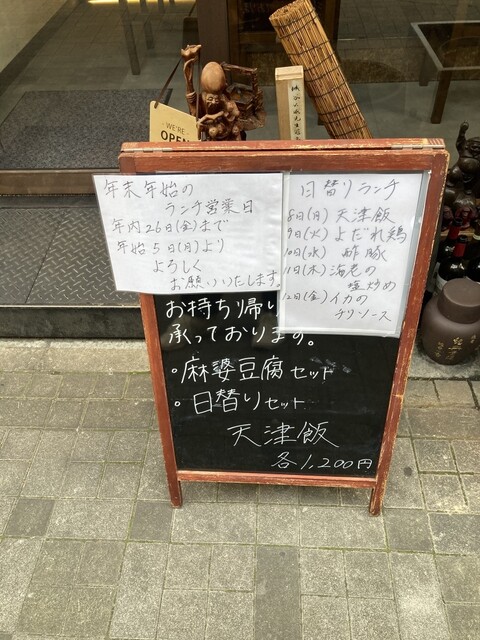 WE'RE
OPEN
年末年始の
ランチ営業日
年内26日(金)まで
年始5日(月)より
よろしく
お願いいたします。
日替りランチ
8日(月) 天津飯
9日(火) よだれ鶏
10日(水) 酢豚
11日(木) 海老の
塩炒め
12日(金) イカの
チリソース
お持ち帰り
承っております。
・麻婆豆腐セット
・日替りセット
天津飯
各1,200円